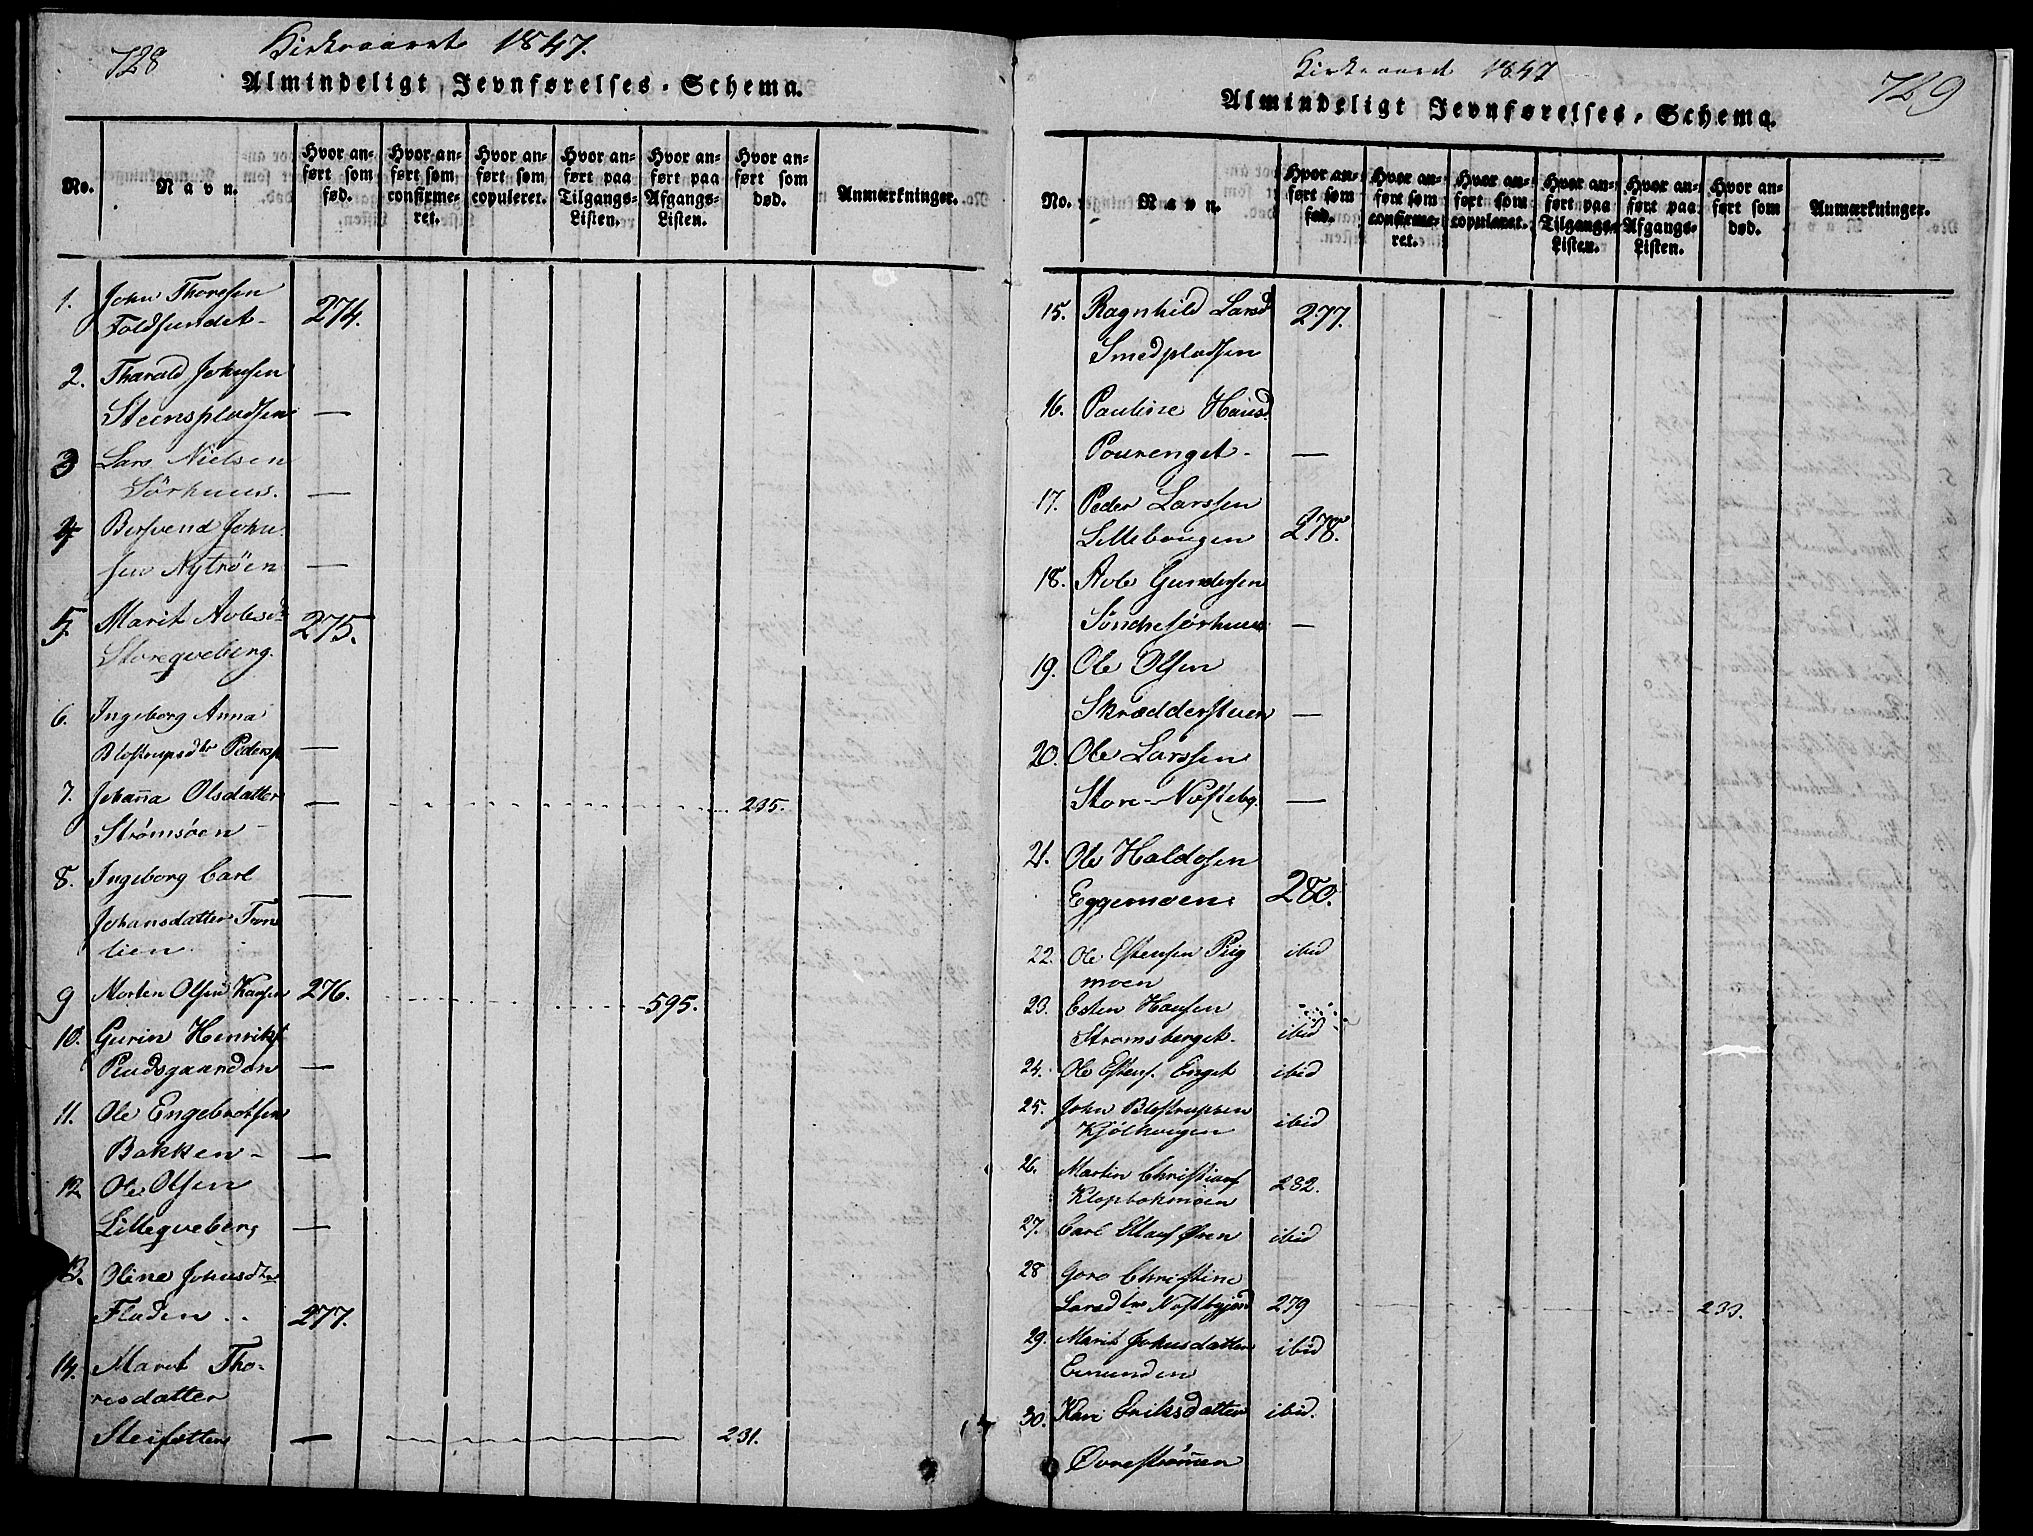 728
Kirkeaaret 1847.
Almindeligt Jevnførelses-Schema.
No.
Navn.
Hvor anført som fød.
Hvor anført som confirmeret.
Hvor anført som copuleret.
Hvor anført paa Tilgangs-Listen.
Hvor anført paa Afgangs-Listen.
Hvor anført som død.
Anmærkninger.
1. John Thoresen
Foldsundet- 274.
2. Tharald Johnsen
Steensplodsen —
3 Lars Nielsen
Sörhuus. —
4 Bersvend John
sen Nytröen —
5. Marit Avlesd
Storeqveberg. 275.
6. Ingeborg Anna
Blostrupsdtr Pedersp —
7. Johanna Olsdatter — 235.
Strømsöen -
8. Ingeborg Carl —
Johansdatter Tron
lien
9 Morten Olsen 276. 595.
10. Gurin Henriks
—
11. Ole Engebretsen
Bakken- —
12 Ole Olsen
Lilleqveberg —
13. Oline Johnsdtr
Floden .. 277.
14. Marit Tho-
resdatter
— 231.
729
Kirkeaaret 1847
Almindeligt Jevnførelses-Schema.
No.
Navn.
Hvor anført som fød.
Hvor anført som confirmeret.
Hvor anført som copuleret.
Hvor anført paa Tilgangs-Listen.
Hvor anført paa Afgangs-Listen.
Hvor anført som død.
Anmærkninger.
15. Ragnhild Larsd 277.
Smedplodsen
16. Pauline Hansd.
Pourenget- —
17. Peder Larssen
Lillebougen 278.
18. Avle Gundersen
Söndresörhuus —
19. Ole Olsen
Skrædderstuen —
20. Ole Larssen
Store-Nøsteby. —
21. Ole Haldosen
Eggemoen 280.
22. Ole Estensen Piig ibid
moen
23. Esten Hansen
Stromsberget. ibid
24. Ole Estens. Enget ibid
25. John Blostrupsen
Kjölhougen ibid
26. Martin Christians
282.
27. Carl Øien ibid
28 Goro Christine
Larsdtr 279 233.
29. Marit Johnsdatter ibid
Emunden
30. Kari Eriksdatter ibid.
Øvreströmmen